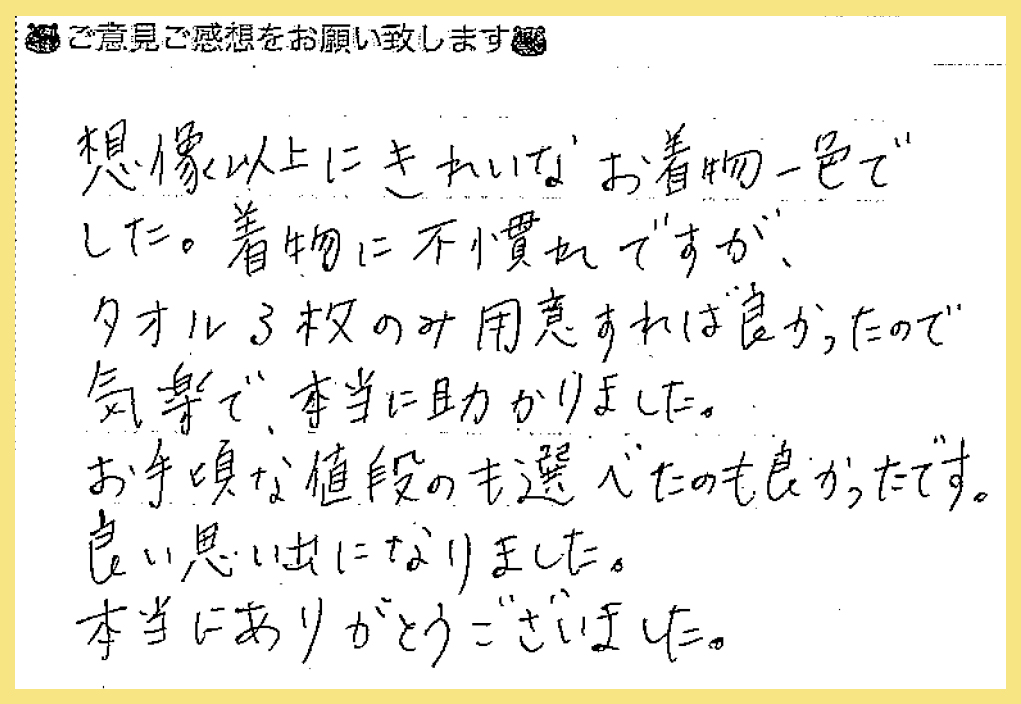 ご意見ご感想をお願い致します
想像以上にきれいなお着物一色で
した。着物に不慣れですが、
タオル3枚のみ用意すれば良かったので
気楽で、本当に助かりました。
お手頃な値段のも選べたのも良かったです。
良い思い出になりました。
本当にありがとうございました。